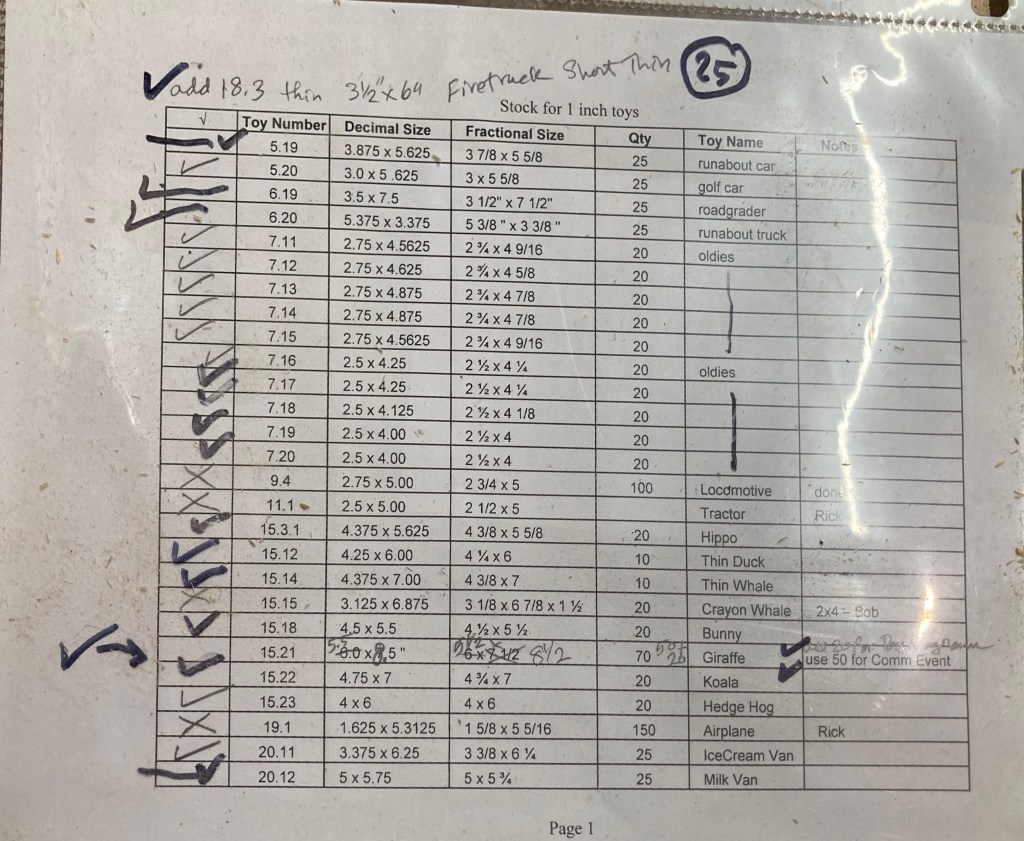 ✓ add 18.3 thin 3½" x 6" Firetruck Short Thin 25
Stock for 1 inch toys
√ Toy Number Decimal Size Fractional Size Qty Toy Name Notes
5.19 3.875 x 5.625 3 7/8 x 5 5/8 25 runabout car
5.20 3.0 x 5 .625 3 x 5 5/8 25 golf car
6.19 3.5 x 7.5 3 1/2" x 7 1/2" 25 roadgrader
6.20 5.375 x 3.375 5 3/8 " x 3 3/8 " 25 runabout truck
7.11 2.75 x 4.5625 2 ¾ x 4 9/16 20 oldies
7.12 2.75 x 4.625 2 ¾ x 4 5/8 20
7.13 2.75 x 4.875 2 ¾ x 4 7/8 20
7.14 2.75 x 4.875 2 ¾ x 4 7/8 20
7.15 2.75 x 4.5625 2 ¾ x 4 9/16 20
7.16 2.5 x 4.25 2 ½ x 4 ¼ 20 oldies
7.17 2.5 x 4.25 2 ½ x 4 ¼ 20
7.18 2.5 x 4.125 2 ½ x 4 1/8 20
7.19 2.5 x 4.00 2 ½ x 4 20
7.20 2.5 x 4.00 2 ½ x 4 20
9.4 2.75 x 5.00 2 3/4 x 5 100 Locomotive done
11.1 2.5 x 5.00 2 1/2 x 5 Tractor Rick
15.3.1 4.375 x 5.625 4 3/8 x 5 5/8 20 Hippo
15.12 4.25 x 6.00 4 ¼ x 6 10 Thin Duck
15.14 4.375 x 7.00 4 3/8 x 7 10 Thin Whale
15.15 3.125 x 6.875 3 1/8 x 6 7/8 x 1 ½ 20 Crayon Whale 2x4 – Bob
15.18 4.5 x 5.5 4 ½ x 5 ½ 20 Bunny
15.21 5.5 6.0 x 8.5 " 5 1/2 6 x 7 1/2 8 1/2 70 50+ 20 Giraffe use 50 for Comm Event
15.22 4.75 x 7 4 ¾ x 7 20 Koala
15.23 4 x 6 4 x 6 20 Hedge Hog
19.1 1.625 x 5.3125 1 5/8 x 5 5/16 150 Airplane Rick
20.11 3.375 x 6.25 3 3/8 x 6 ¼ 25 IceCream Van
20.12 5 x 5.75 5 x 5 ¾ 25 Milk Van
Page 1